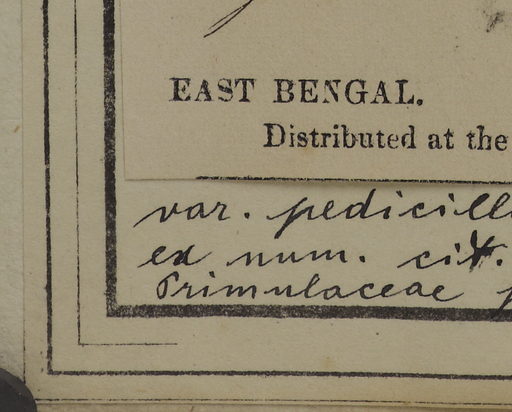 EAST BENGAL.
Distributed at the
var. pedicill
ex num. cit.
Primulaceae p